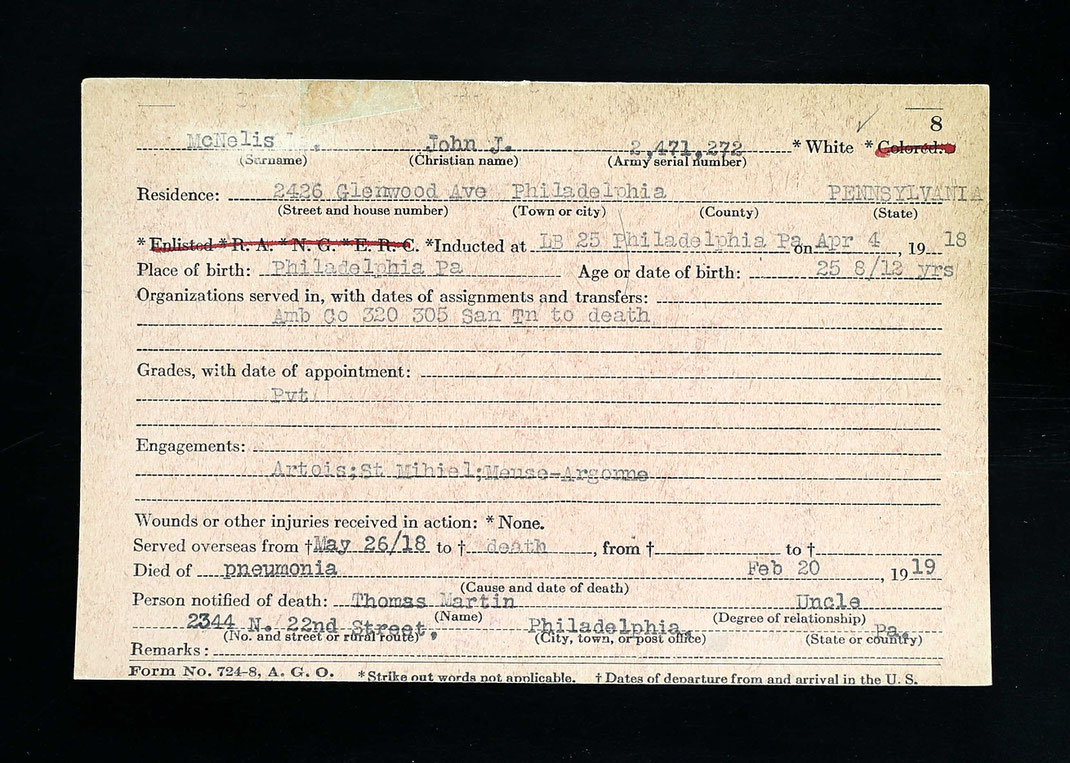 8
McNelis John J. 2,471,272 * White * Colored.
(Surname) (Christian name) (Army serial number)
Residence: 2426 Glenwood Ave Philadelphia PENNSYLVANIA
(Street and house number) (Town or city) (County) (State)
* Enlisted * R. A. * N. G. * E. R. C. *Inducted at LB 25 Philadelphia Pa on Apr 4, 19 18
Place of birth: Philadelphia Pa Age or date of birth: 25 8/12 yrs
Organizations served in, with dates of assignments and transfers:
Amb Co 320 305 San Tn to death
Grades, with date of appointment:
Pvt
Engagements:
Artois;St Mihiel;Meuse-Argonne
Wounds or other injuries received in action: * None.
Served overseas from † May 26/18 to † death, from † to †
Died of pneumonia Feb 20, 19 19
(Cause and date of death)
Person notified of death: Thomas Martin Uncle
(Name) (Degree of relationship)
2344 N. 22nd Street, Philadelphia, Pa.
(No. and street or rural route) (City, town, or post office) (State or country)
Remarks:
Form No. 724-8, A. G. O. * Strike out words not applicable. † Dates of departure from and arrival in the U. S.